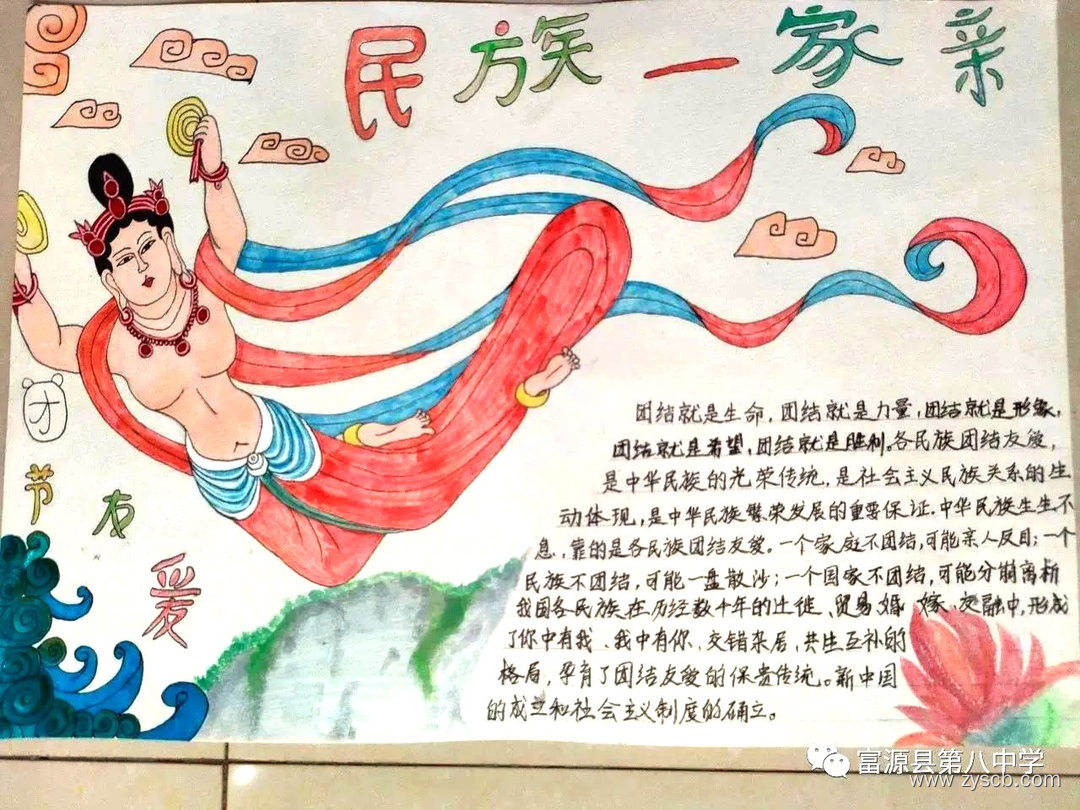 民族一家亲
团节友爱
团结就是生命，团结就是力量，团结就是形象，
团结就是希望，团结就是胜利。各民族团结友爱，
是中华民族的光荣传统，是社会主义民族关系的生
动体现，是中华民族繁荣发展的重要保证．中华民族生生不
息，靠的是各民族团结友爱。一个家庭不团结，可能亲人反目；一个
民族不团结，可能一盘散沙；一个国家不团结，可能分崩离析
我国各民族在历经数千年的迁徙、贸易婚嫁、交融中，形成
了你中有我、我中有你，交错杂居，共生互补的
格局，孕育了团结友爱的保贵传统。新中国
的成立和社会主义制度的确立。
富源县第八中学
www.zyscb.com